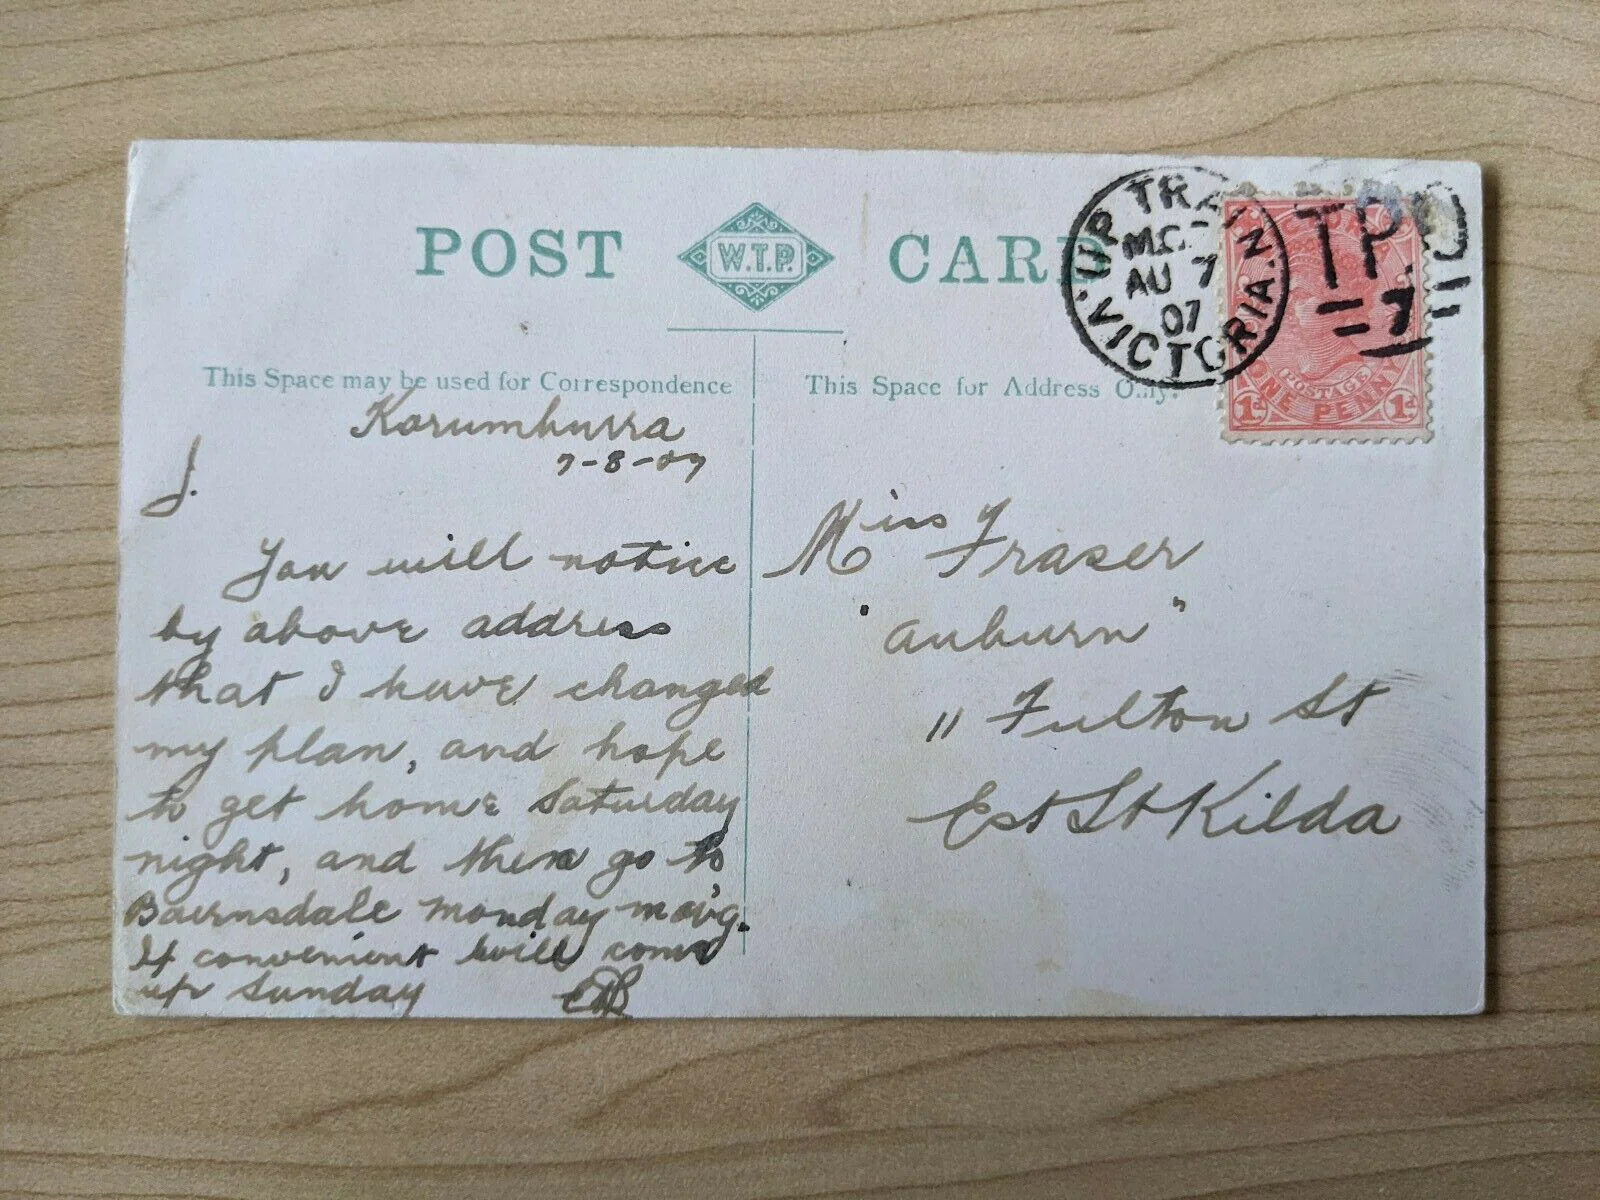 POST W.T.P. CARD
This Space may be used for Correspondence
Korumburra
7-8-07
J.
You will notice
by above address
that I have changed
my plan, and hope
to get home Saturday
night, and then go to
Bairnsdale Monday mor'g.
If convenient will come
up Sunday
This Space for Address Only.
Miss J Fraser
"Auburn"
11 Fulton St
East St Kilda
UP TRAIN
AU 7
07
VICTORIA
T.P.O
=7=1
VICTORIA
POSTAGE
ONE PENNY
1d 1d